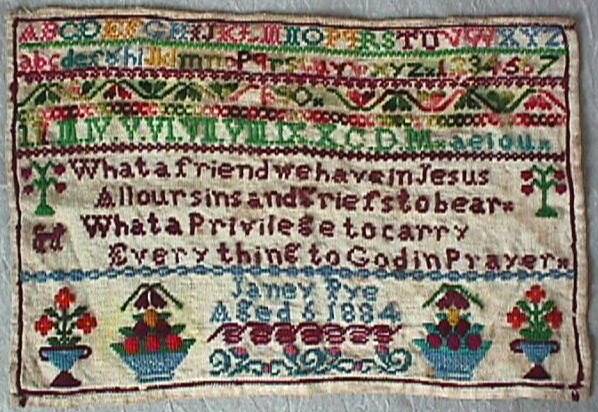 ABCDEFGHIJKLMNOPQRSTUVWXYZ
abcdefghijklmnopqrstuvwxyz 1 2 3 4 5 6 7
I II III IV V VI VII VIII IX X C D M aeiou
What a friend we have in Jesus
All our sins and Griefs to bear
What a Privilege to carry
Every thing to God in Prayer
Janey Pye
Aged 6 1884